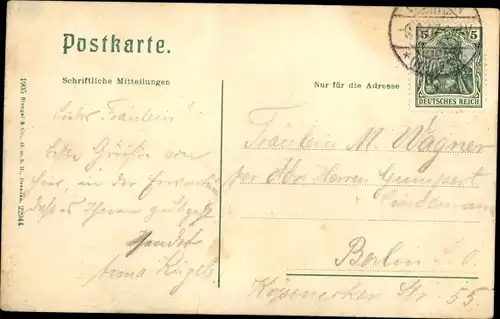 Postkarte.
Schriftliche Mitteilungen
Nur für die Adresse
5 5
DEUTSCHES REICH
1905 Stengel & Co., G. m. b. H., Dresden. 28044
Liebes Fräulein!
Beste Grüsse von
hier, in der Erwartung
dass es Ihnen gut geht
sendet
Anna
Fräulein M. Wagner
per Adr. Herren Gumpert
Lindemann
Berlin S. O.
Köpenicker Str. 55